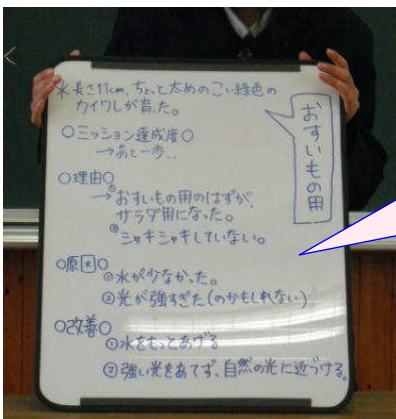 ※長さ11cm、ちょっと太めのこい緑色の
カイワレが育った。
おすいもの用
○ミッション達成度○
→あと一歩…
○理由○
→①おすいもの用のはずが、
サラダ用になった。
②シャキシャキしていない。
○原因○
①水が少なかった。
②光が強すぎた(のかもしれない)
○改善○
①水をもっとあげる
②強い光をあてず、自然の光に近づける。